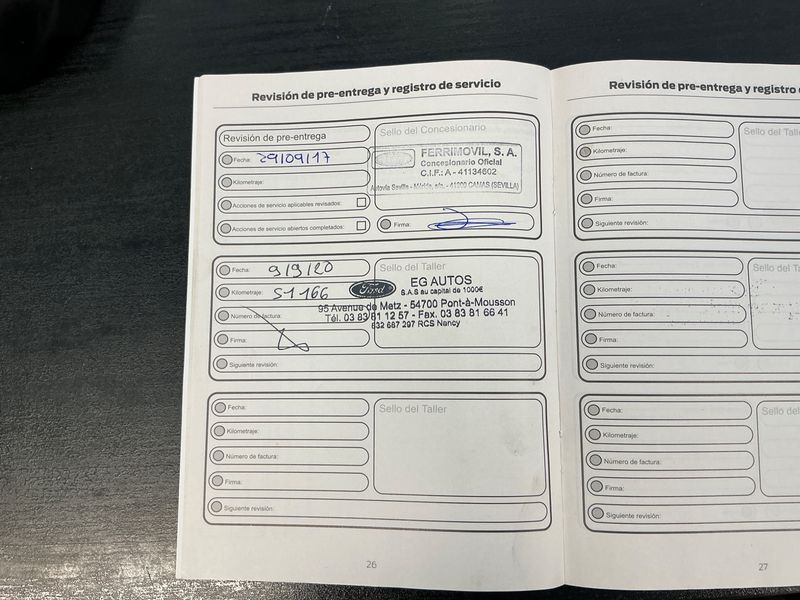 Revisión de pre-entrega y registro de servicio
Revisión de pre-entrega
Sello del Concesionario
Fecha: 29/09/17
FERRIMOVIL, S. A.
Concesionario Oficial
C.I.F.: A - 41134602
Kilometraje:
Autovía Sevilla - Mérida, s/n. - 41900 CAMAS (SEVILLA)
Acciones de servicio aplicables revisados:
Acciones de servicio abiertos completados:
Firma:
Fecha: 9/9/20
Sello del Taller
Kilometraje: 51166
Ford
EG AUTOS
S.A.S au capital de 1000€
95 Avenue de Metz - 54700 Pont-à-Mousson
Número de factura:
Tél. 03 83 81 12 57 - Fax. 03 83 81 66 41
832 687 297 RCS Nancy
Firma:
Siguiente revisión:
Fecha:
Sello del Taller
Kilometraje:
Número de factura:
Firma:
Siguiente revisión:
26
Revisión de pre-entrega y registro
Fecha:
Sello del Taller
Kilometraje:
Número de factura:
Firma:
Siguiente revisión:
Fecha:
Sello del Ta
Kilometraje:
Número de factura:
Firma:
Siguiente revisión:
Fecha:
Sello del
Kilometraje:
Número de factura:
Firma:
Siguiente revisión:
27